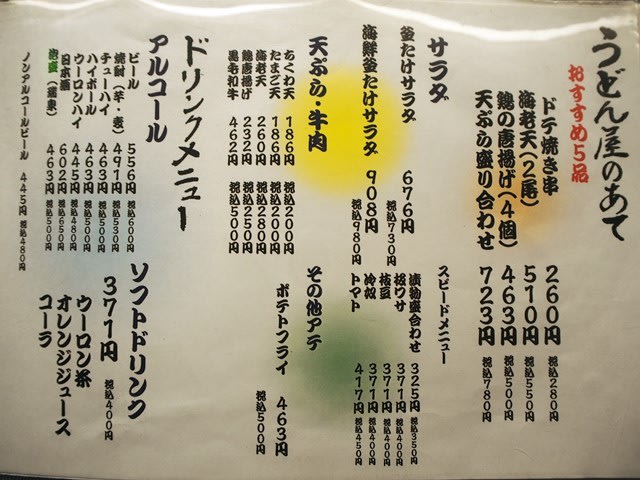 うどん屋のあて
おすすめ5品
ドテ焼き串 260円 税込280円
海老天(2尾) 510円 税込550円
鶏の唐揚げ(4個) 463円 税込500円
天ぷら盛り合わせ 723円 税込780円
サラダ
釜たけサラダ 676円 税込730円
海鮮釜たけサラダ 908円 税込980円
スピードメニュー
漬物盛合わせ 325円 税込350円
板ワサ 371円 税込400円
枝豆 371円 税込400円
冷奴 371円 税込400円
トマト 417円 税込450円
天ぷら・牛肉
ちくわ天 186円 税込200円
たまご天 186円 税込200円
海老天 260円 税込280円
鶏唐揚 232円 税込250円
黒毛和牛 462円 税込500円
その他アテ
ポテトフライ 463円 税込500円
ドリンクメニュー
アルコール
ビール 556円 税込600円
焼酎(芋・麦) 491円 税込530円
チューハイ 463円 税込500円
ハイボール 463円 税込500円
ウーロンハイ 445円 税込480円
日本酒 602円 税込650円
泡盛(瑞泉) 463円 税込500円
ノンアルコールビール 445円 税込480円
ソフトドリンク
371円 税込400円
ウーロン茶
オレンジジュース
コーラ